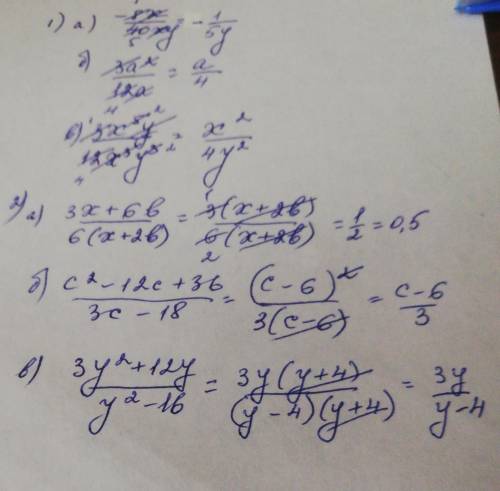 1) а) -8x/40xy = -1/5y
б) 3a²/12a = a/4
в) 3x⁵y/12x³y³ = x²/4y²
2) а) 3x+6b/6(x+2b) = 3(x+2b)/6(x+2b) = 1/2 = 0,5
б) c²-12c+36/3c-18 = (c-6)²/3(c-6) = c-6/3
в) 3y²+12y/y²-16 = 3y(y+4)/(y-4)(y+4) = 3y/y-4